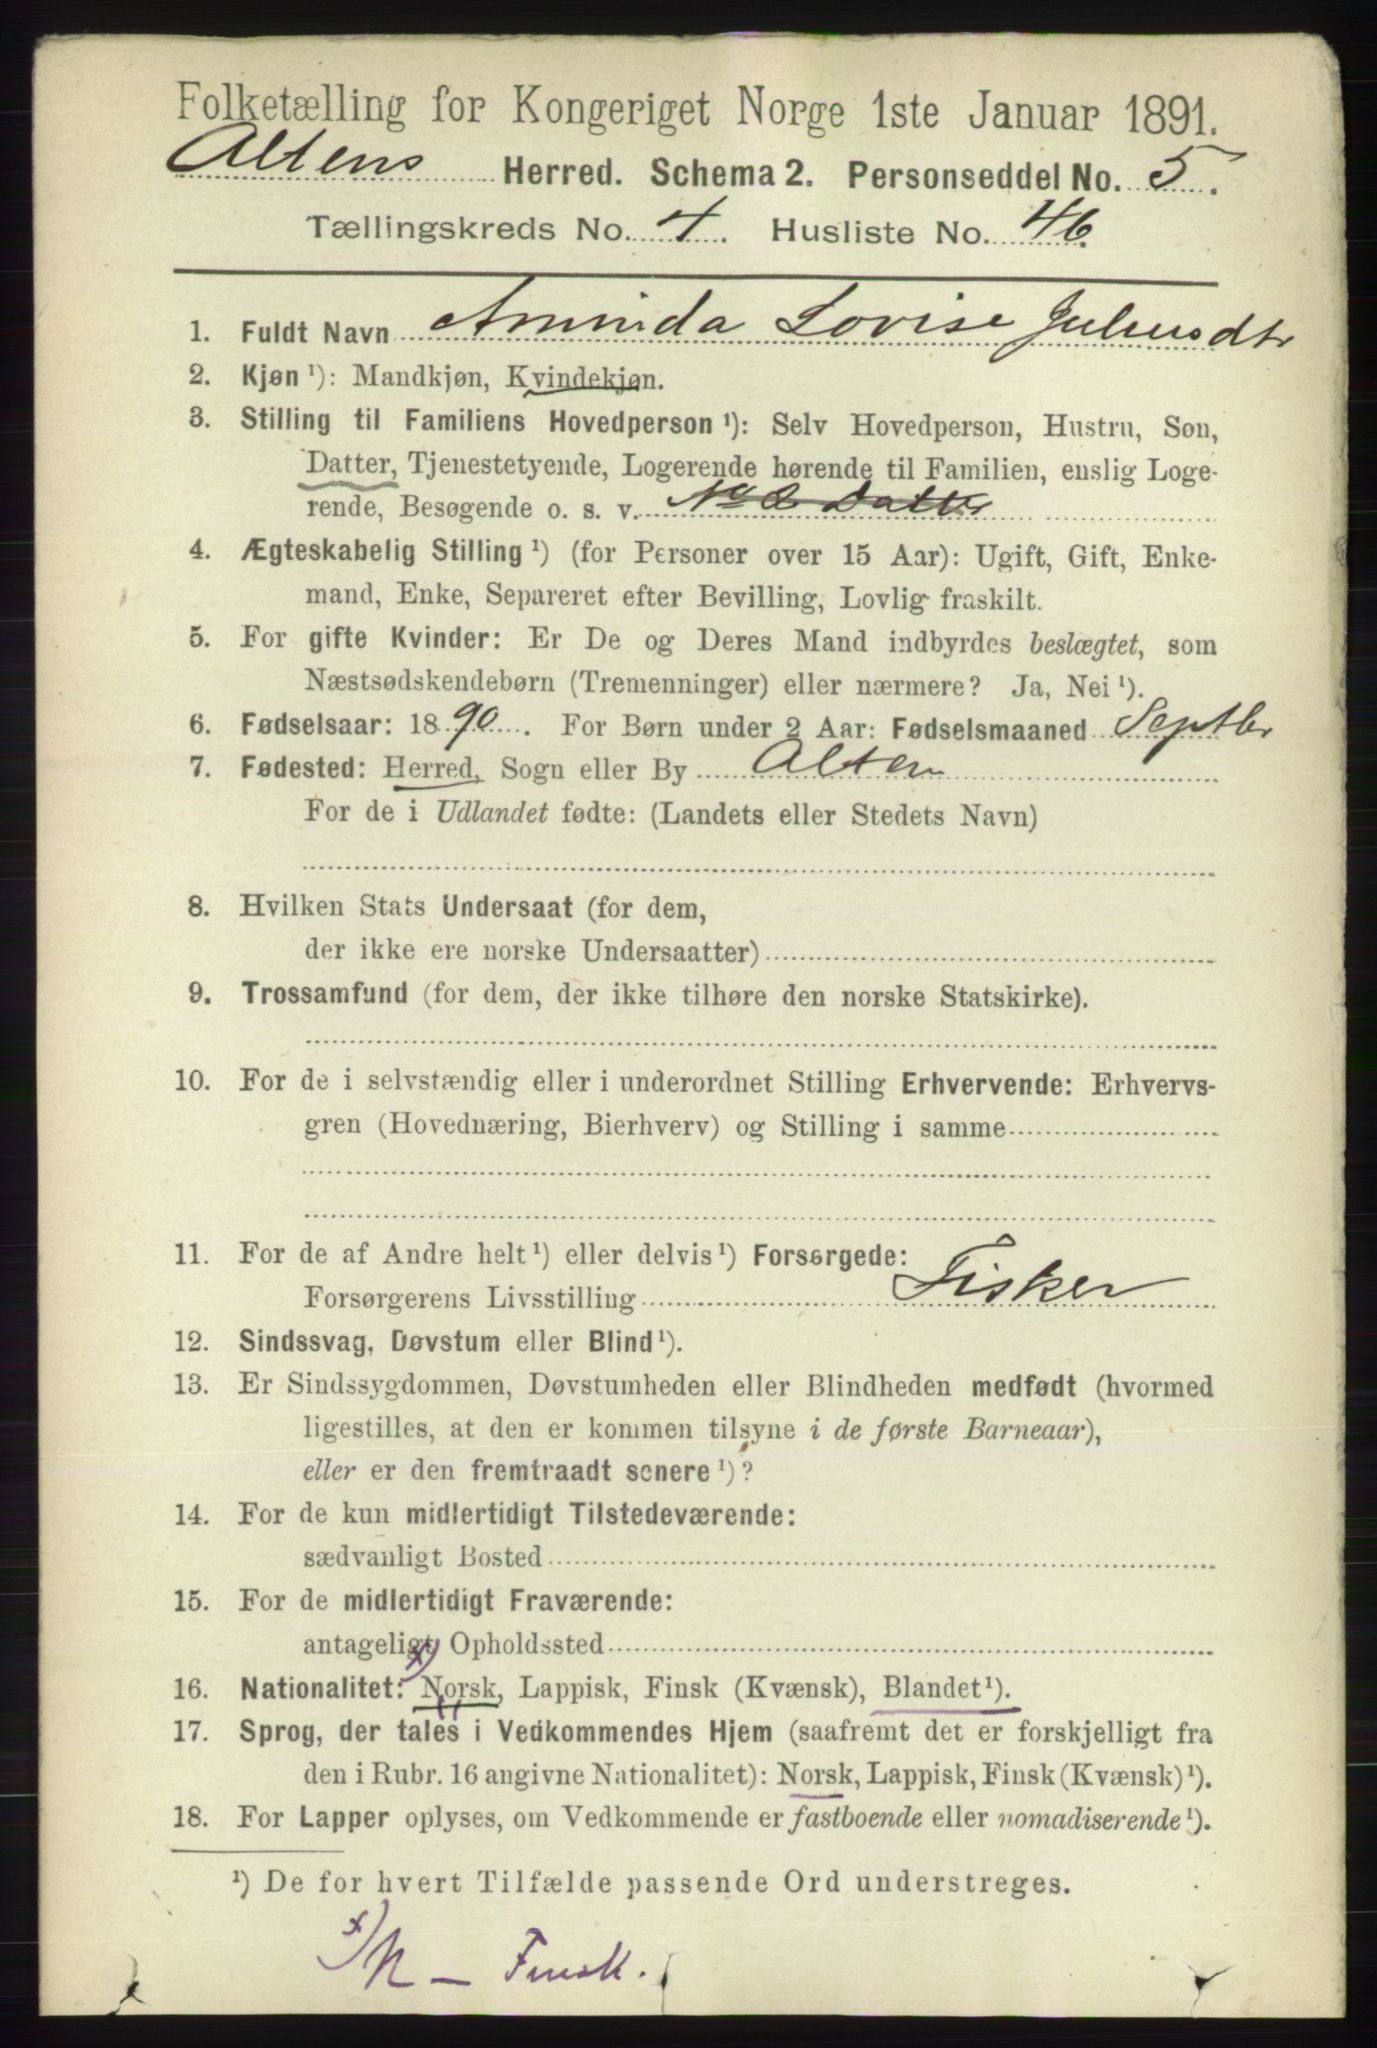 Folketælling for Kongeriget Norge 1ste Januar 1891.
Altens Herred. Schema 2. Personseddel No. 5.
Tællingskreds No. 4. Husliste No. 46.
1. Fuldt Navn Aminda Lovise Juliusdtr
2. Kjøn ¹): Mandkjøn, Kvindekjøn.
3. Stilling til Familiens Hovedperson ¹): Selv Hovedperson, Hustru, Søn,
Datter, Tjenestetyende, Logerende hørende til Familien, enslig Loge-
rende, Besøgende o. s. v. No 2 Datter
4. Ægteskabelig Stilling ¹) (for Personer over 15 Aar): Ugift, Gift, Enke-
mand, Enke, Separeret efter Bevilling, Lovlig fraskilt.
5. For gifte Kvinder: Er De og Deres Mand indbyrdes beslægtet, som
Næstsødskendebørn (Tremenninger) eller nærmere? Ja, Nei ¹).
6. Fødselsaar: 1890. For Børn under 2 Aar: Fødselsmaaned Septbr
7. Fødested: Herred, Sogn eller By Alten
For de i Udlandet fødte: (Landets eller Stedets Navn)
8. Hvilken Stats Undersaat (for dem,
der ikke ere norske Undersaatter)
9. Trossamfund (for dem, der ikke tilhøre den norske Statskirke).
10. For de i selvstændig eller i underordnet Stilling Erhvervende: Erhvervs-
gren (Hovednæring, Bierhverv) og Stilling i samme
11. For de af Andre helt ¹) eller delvis ¹) Forsørgede:
Forsørgerens Livsstilling Fisker
12. Sindssvag, Døvstum eller Blind ¹).
13. Er Sindssygdommen, Døvstumheden eller Blindheden medfødt (hvormed
ligestilles, at den er kommen tilsyne i de første Barneaar),
eller er den fremtraadt senere ¹)?
14. For de kun midlertidigt Tilstedeværende:
sædvanligt Bosted
15. For de midlertidigt Fraværende:
antageligt Opholdssted
16. Nationalitet: x) Norsk, Lappisk, Finsk (Kvænsk), Blandet ¹).
17. Sprog, der tales i Vedkommendes Hjem (saafremt det er forskjelligt fra
den i Rubr. 16 angivne Nationalitet): Norsk, Lappisk, Finsk (Kvænsk) ¹).
18. For Lapper oplyses, om Vedkommende er fastboende eller nomadiserende ¹).
¹) De for hvert Tilfælde passende Ord understreges.
x) N — Finsk.